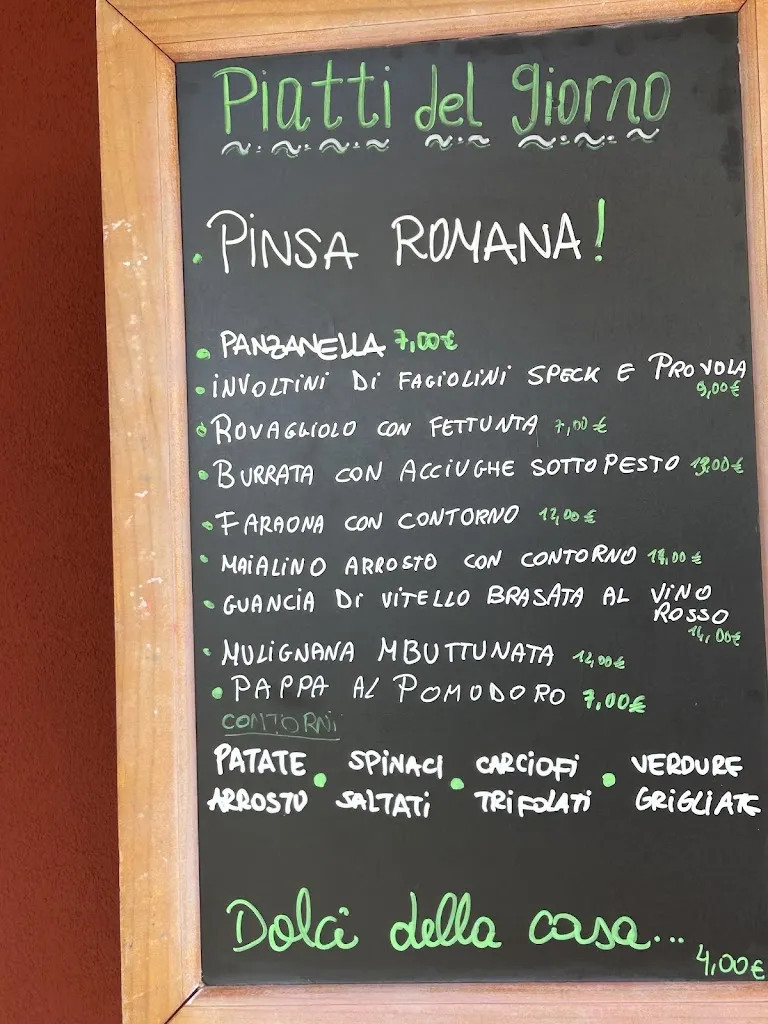 Piatti del giorno
PINSA ROMANA!
PANZANELLA 7,00€
INVOLTINI DI FAGIOLINI SPECK E PROVOLA
9,00€
ROVAGGIOLO CON FETTUNTA 7,00€
BURRATA CON ACCIUGHE SOTTO PESTO
FARAONA CON CONTORNO 12,00€
MAIALINO ARROSTO CON CONTORNO
GUANCIA DI VITELLO BRASATA AL VINO
ROSSO
14,00€
MULIGNANA MBUTTUNATA 12,00€
PAPPA AL POMODORO 7,00€
CONTORNI
PATATE • SPINACI • CARCIOFI • VERDURE
ARROSTO SALTATI TRIFOLATI GRIGLIATE
Dolci della casa...
4,00€